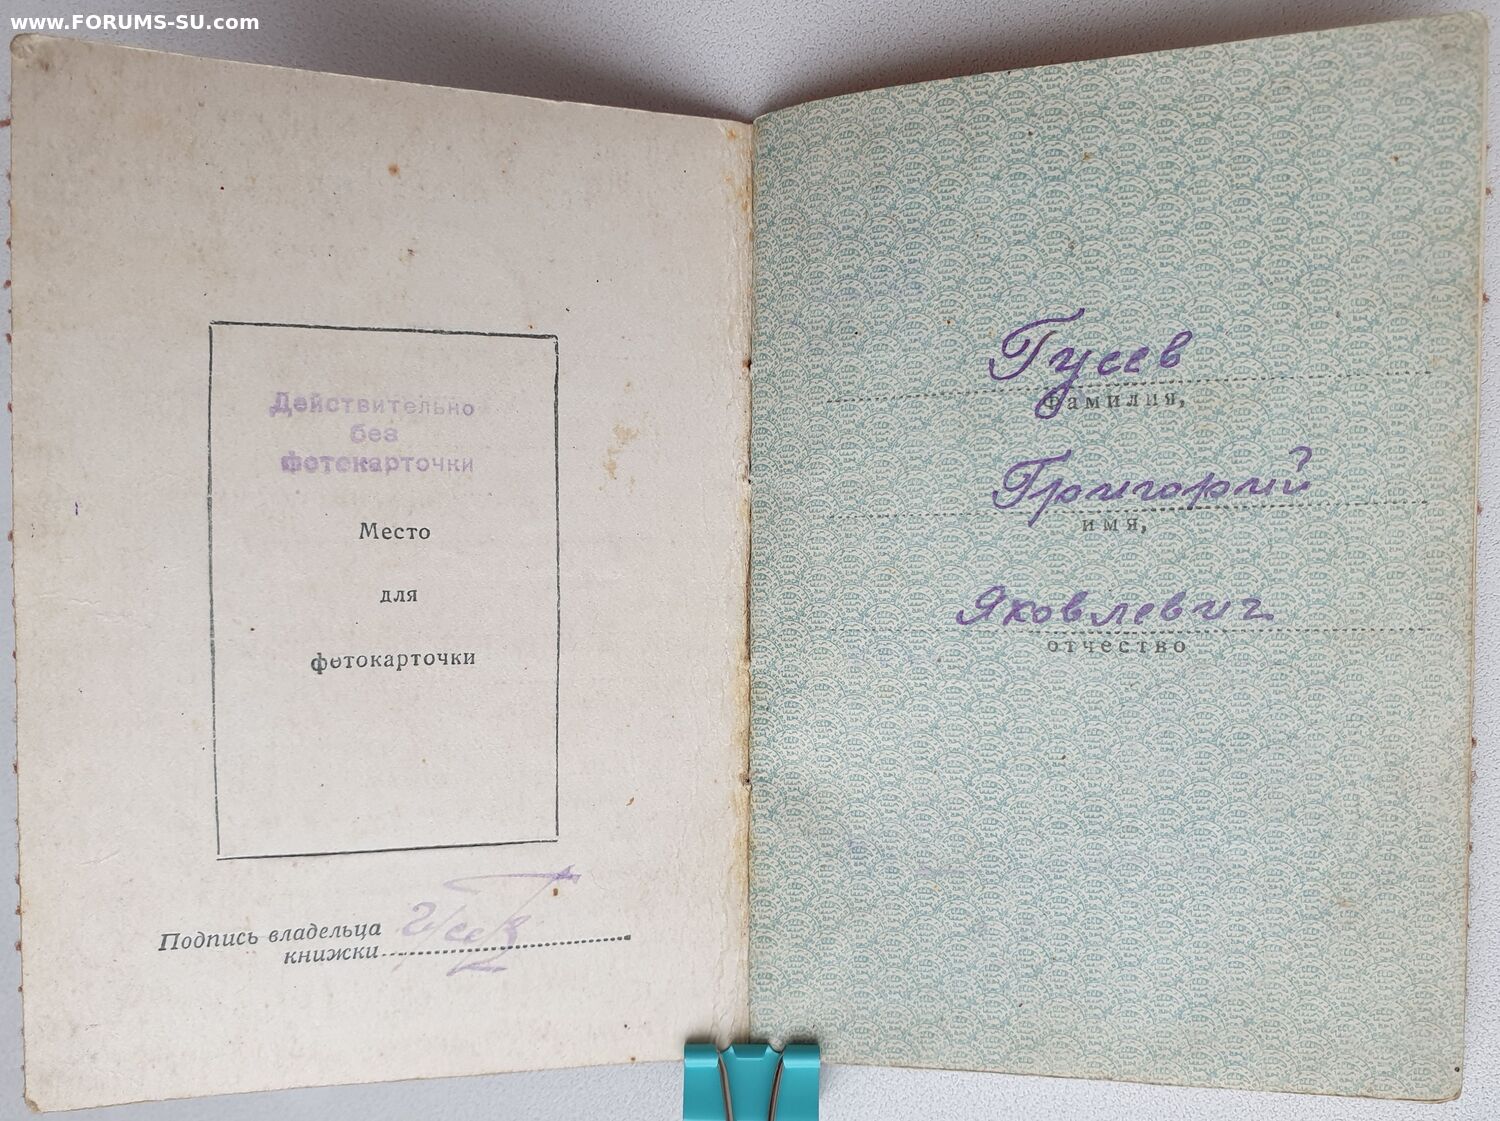 www.FORUMS-SU.com
Действительно
без
фотокарточки
Место
для
фотокарточки
Подпись владельца
книжки
Гусев
фамилия,
Григорий
имя,
Яковлевич
отчество